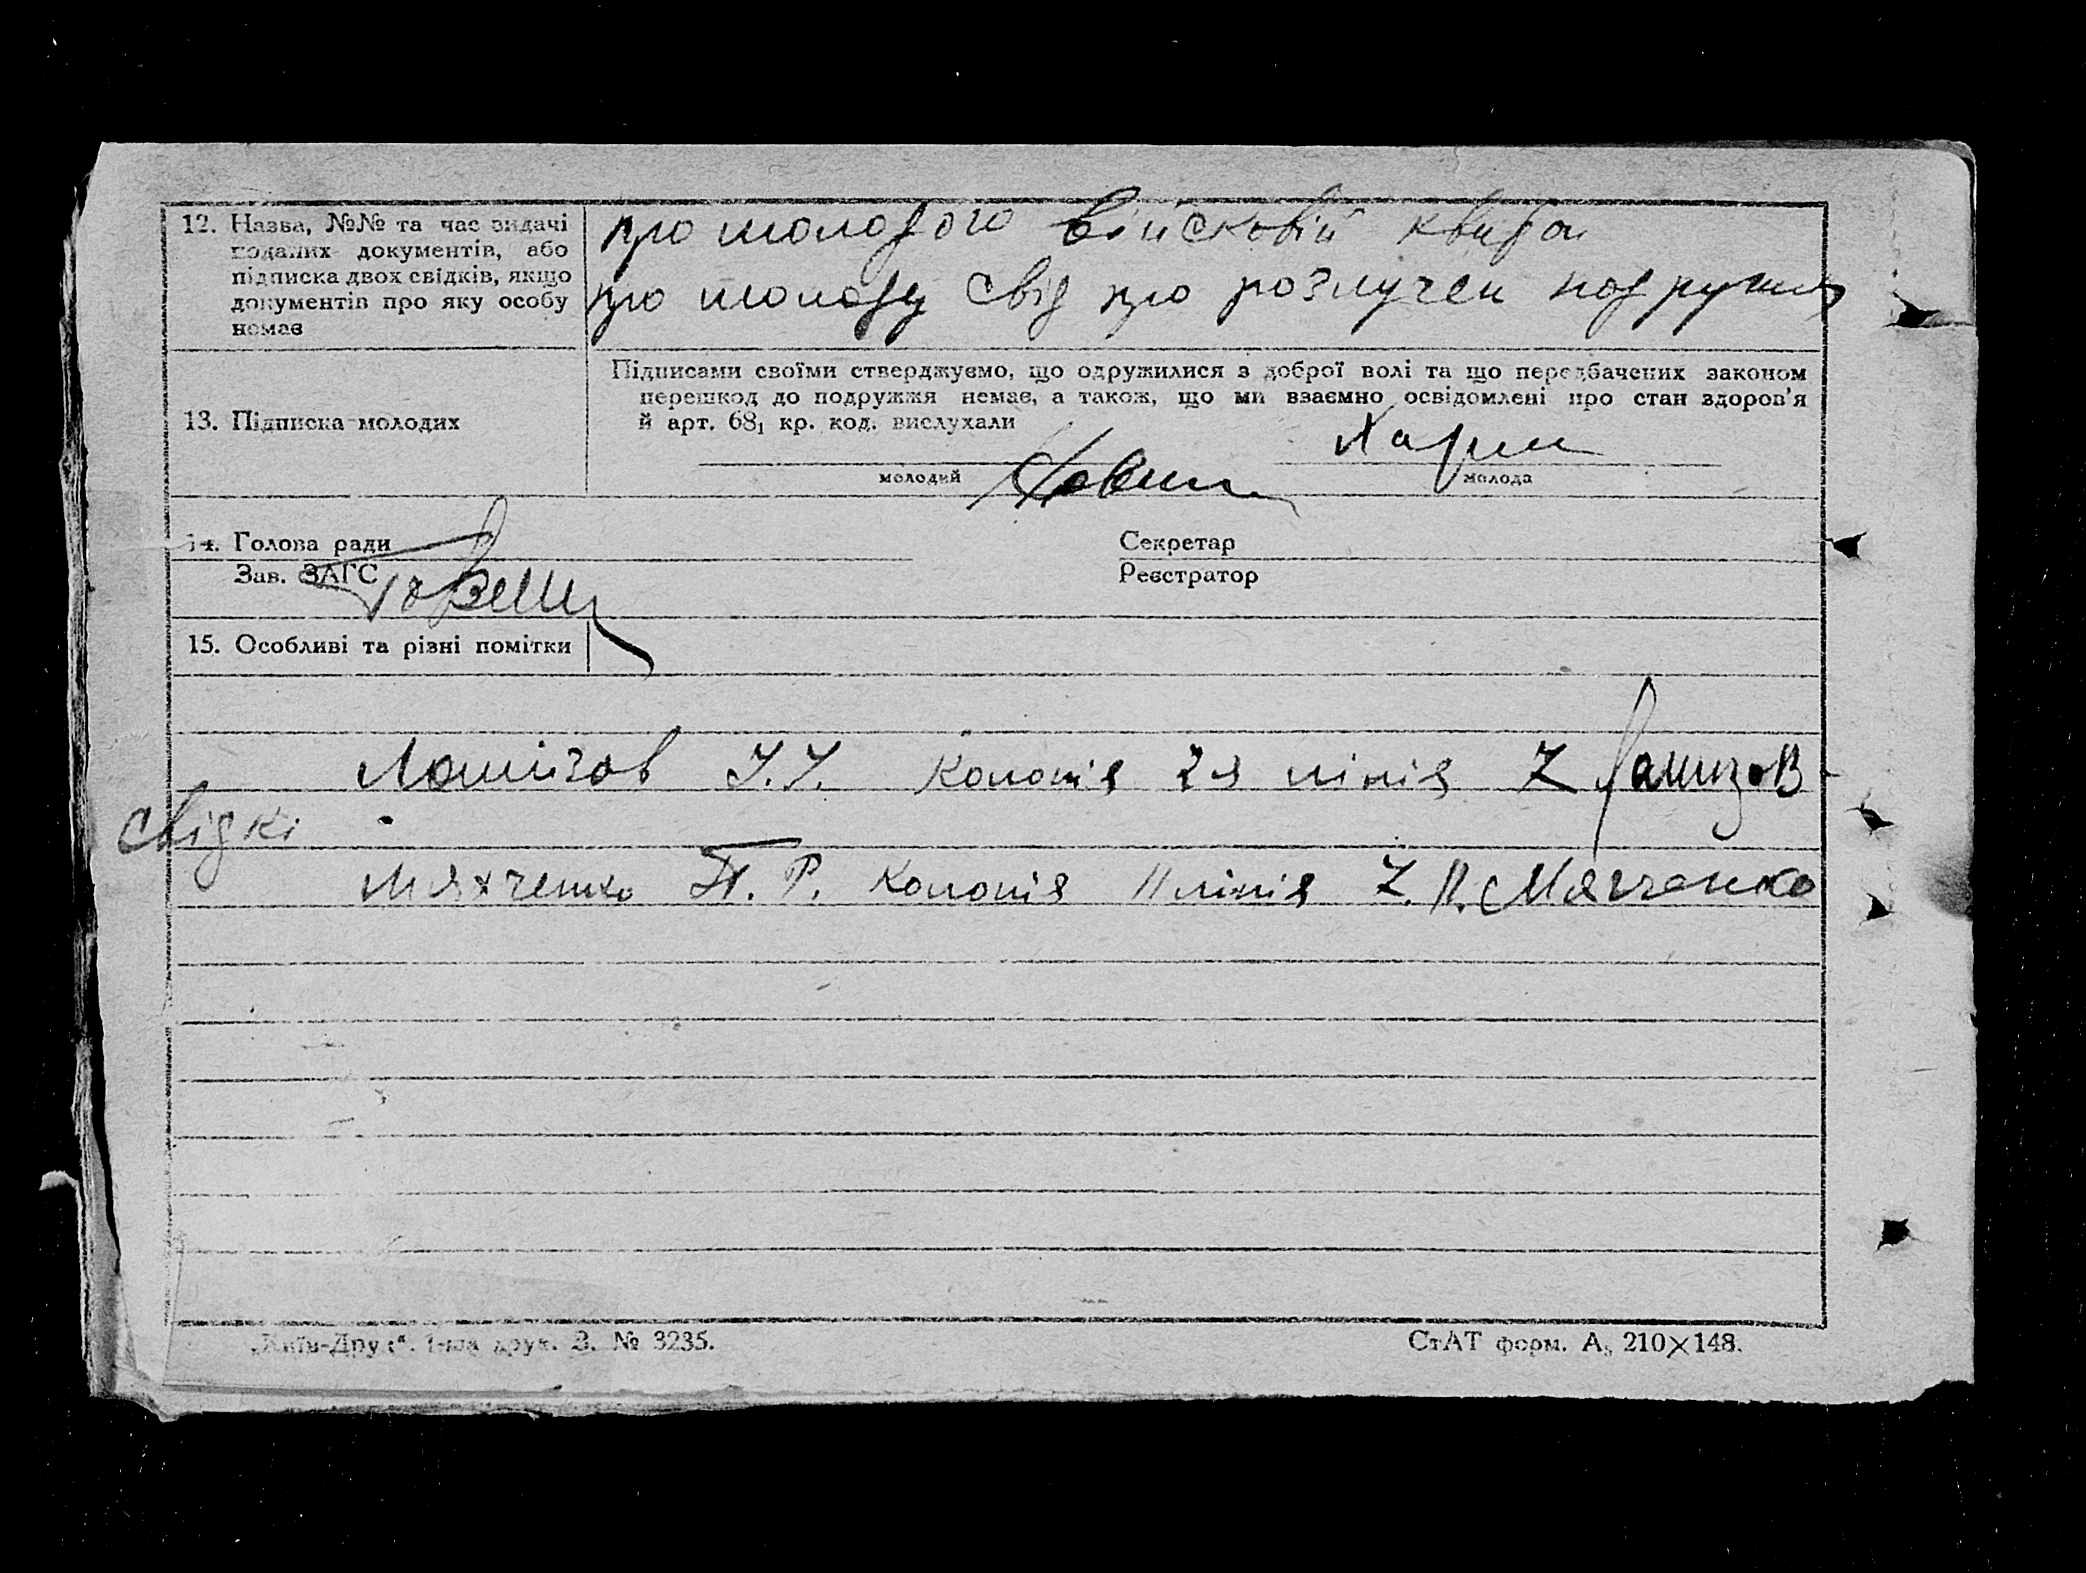 12. Назва, №№ та час видачі
поданих документів, або
підписка двох свідків, якщо
документів про яку особу
немає
про молодого війсковій квиток
про молоду свід про розлучен подружжя
13. Підписка молодих
Підписами своїми стверджуємо, що одружилися з доброї волі та що передбачених законом
перешкод до подружжя немає, а також, що ми взаємно освідомлені про стан здоров'я
й арт. 68₁ кр. код. вислухали
молодий
молода
14. Голова ради
Секретар
Зав. ЗАГС
Реєстратор
15. Особливі та різні помітки
Колонія 2я лінія 7
свідкі
Мяхченко П. Р. Колонія 11 лінія 7.
„Київ-Друк“. 1-ша друк. З. № 3235.
СтАТ форм. А₅ 210×148.